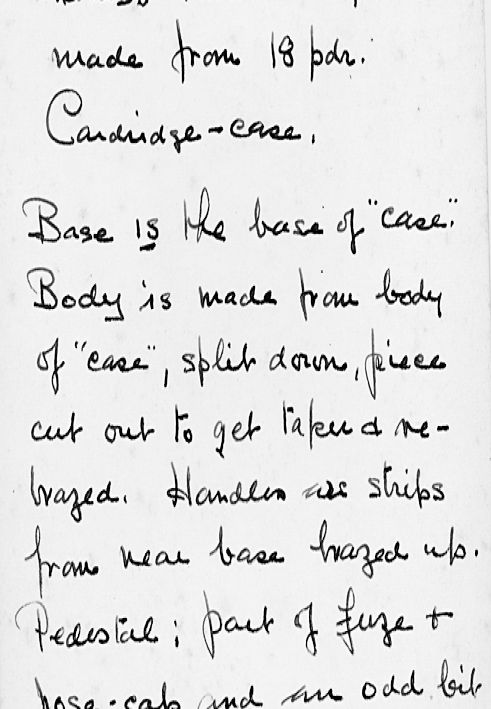 made from 18 pdr.
Cardridge-case.
Base is the base of "case".
Body is made from body
of "case", split down, piece
cut out to get taper & re-
brazed. Handles are strips
from near base brazed up.
Pedestal; part of fuze +
nose-cap and an odd bit